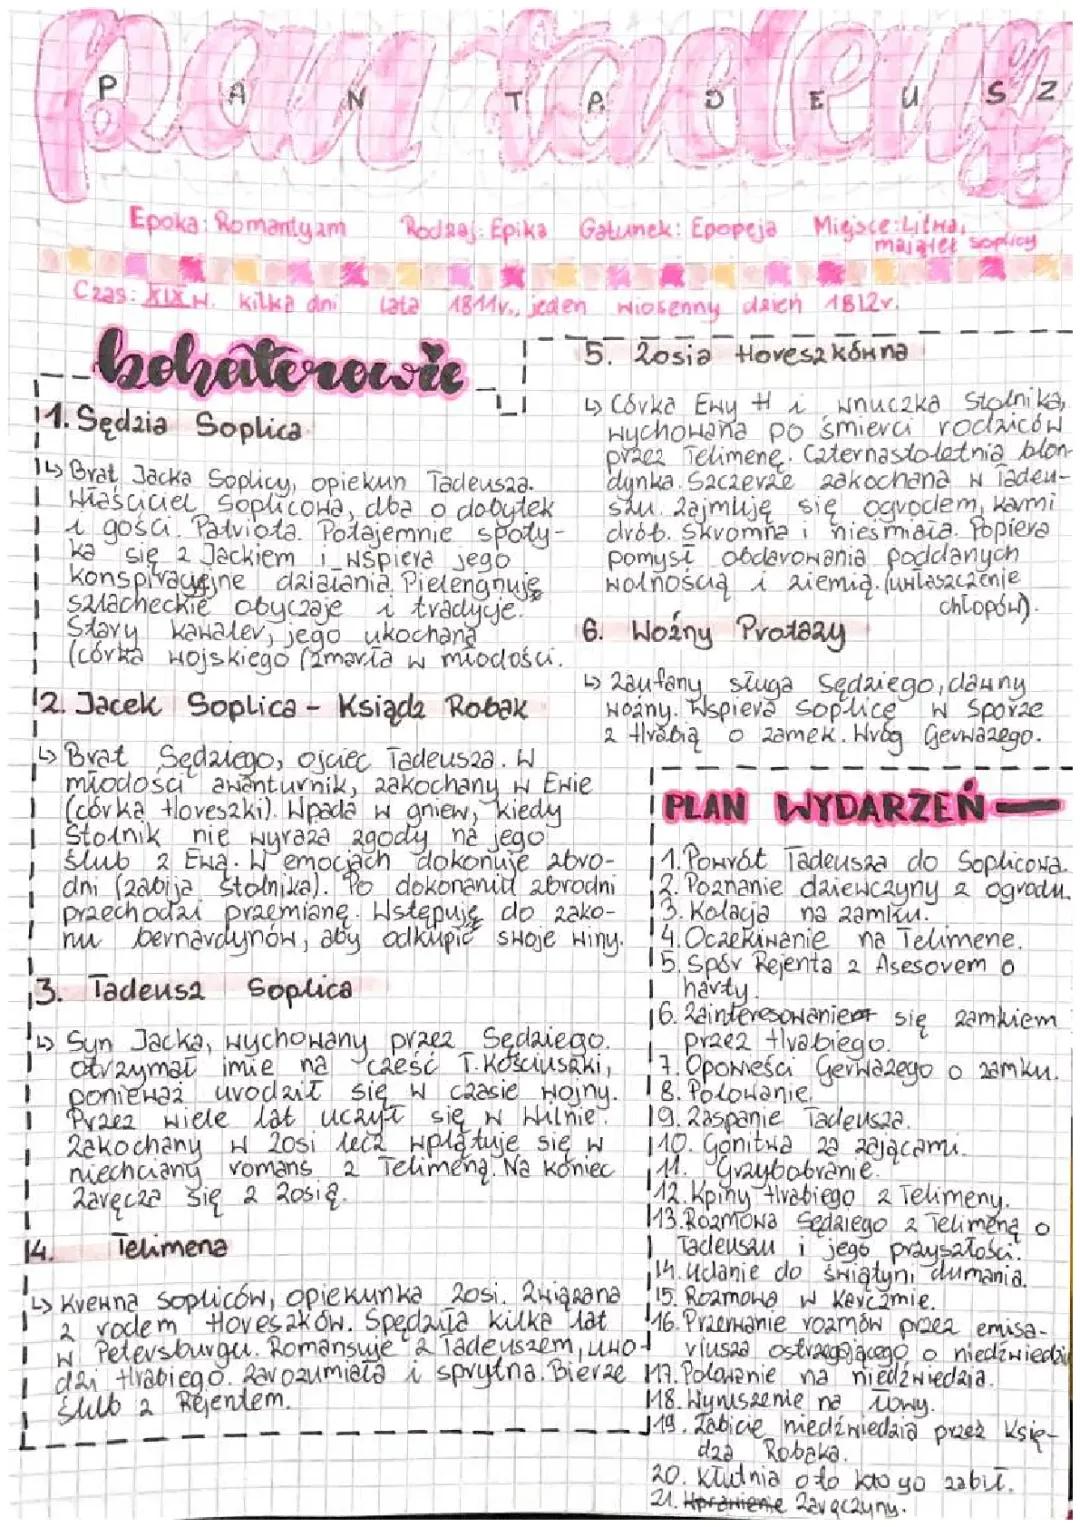 pan tadeusz
PAN TADEUSZ
Epoka: Romantyzm Rodzaj: Epika Gatunek: Epopeja Miejsce: Litwa,
majątek soplicy
Czas: XIX w. kilka dni lata 1811r., jeden wiosenny dzień 1812r.
bohaterowie
1. Sędzia Soplica
↳ Brat Jacka Soplicy, opiekun Tadeusza.
Właściciel Soplicowa, dba o dobytek
i gości. Patriota. Potajemnie spoty-
ka się z Jackiem i wspiera jego
konspiracyjne działania. Pielengnuje
szlacheckie obyczaje i tradycje.
Stary kawaler, jego ukochana
(córka wojskiego (zmarła w młodości.
2. Jacek Soplica - Ksiądz Robak
↳ Brat Sędziego, ojciec Tadeusza. W
młodości awanturnik, zakochany w Ewie
(córka Horeszki). Wpada w gniew, kiedy
Stolnik nie wyraża zgody na jego
ślub z Ewą. W emocjach dokonuje zbro-
dni (zabija Stolnika). Po dokonaniu zbrodni
przechodzi przemianę. Wstępuję do zako-
nu bernardynów, aby odkupić swoje winy.
3. Tadeusz Soplica
↳ Syn Jacka, wychowany przez Sędziego.
otrzymał imie na cześć T. Kościuszki,
ponieważ urodził się w czasie wojny.
Przez wiele lat uczył się w Wilnie.
Zakochany w Zosi lecz wplątuje się w
niechciany romans z Telimeną. Na koniec
zaręcza się z Zosią.
4. Telimena
↳ Krewna sopliców, opiekunka Zosi. Związana
z rodem Horeszków. Spędziła kilka lat
w Petersburgu. Romansuje z Tadeuszem, uwo-
dzi Hrabiego. Zarozumiała i sprytna. Bierze
ślub z Rejentem.
5. Zosia Horeszkówna
↳ Córka Ewy H i wnuczka Stolnika,
wychowana po śmierci rodziców
przez Telimenę. Czternastoletnia blon-
dynka. Szczerze zakochana w Tadeu-
szu. Zajmuję się ogrodem, karmi
drób. Skromna i nieśmiała. Popiera
pomysł obdarowania poddanych
wolnością i ziemią. (uwłaszczenie
chłopów).
6. Woźny Protazy
↳ Zaufany sługa Sędziego, dawny
woźny. Wspiera Soplicę w sporze
z Hrabią o zamek. Wróg Gerwazego.
PLAN WYDARZEŃ
1. Powrót Tadeusza do Soplicowa.
2. Poznanie dziewczyny z ogrodu.
3. Kolacja na zamku.
4. Oczekiwanie na Telimene.
5. Spór Rejenta z Asesorem o
harty.
6. Zainteresowanie się zamkiem
przez Hrabiego.
7. Opowieści Gerwazego o zamku.
8. Polowanie.
9. Zaspanie Tadeusza.
10. Gonitwa za zającami.
11. Grzybobranie.
12. Kpiny Hrabiego z Telimeny.
13. Rozmowa Sędziego z Telimeną o
Tadeuszu i jego przyszłości.
14. Udanie do świątyni dumania.
15. Rozmowa w Karczmie.
16. Przerwanie rozmów przez emisa-
riusza ostrzegającego o niedźwiedziu
17. Polowanie na niedźwiedzia.
18. Wyruszenie na łowy.
19. Zabicie niedźwiedzia przez Księ-
dza Robaka.
20. Kłutnia o to kto go zabił.
21. Zaręczyny.